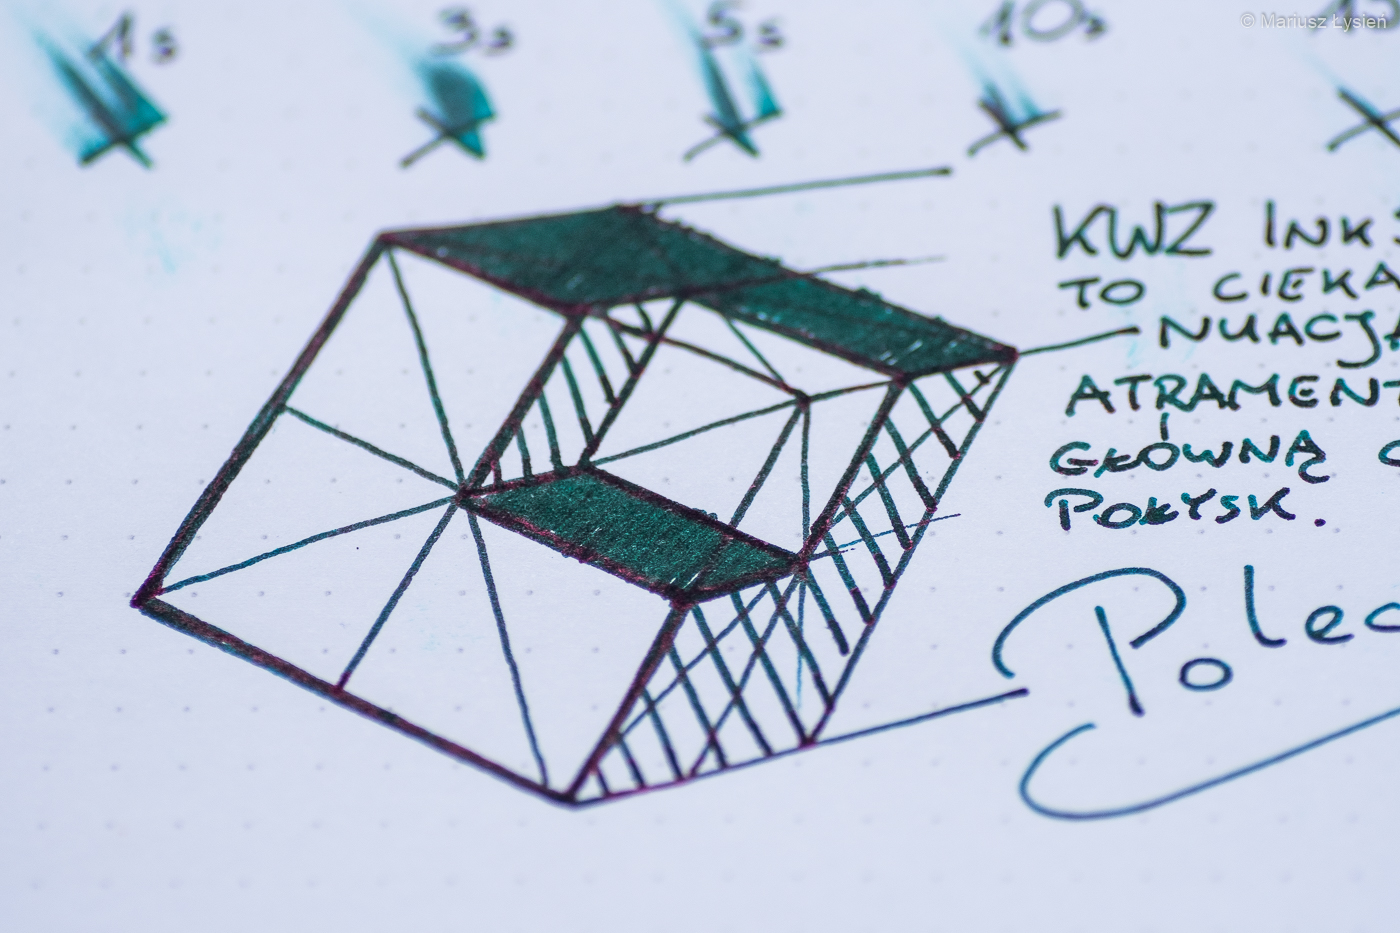 © Mariusz Łysień
1s 3s 5s 10s
KWZ INK
TO CIEKA
NUACJA
ATRAMENT
GŁÓWNĄ C
POŁYSK.
Polec